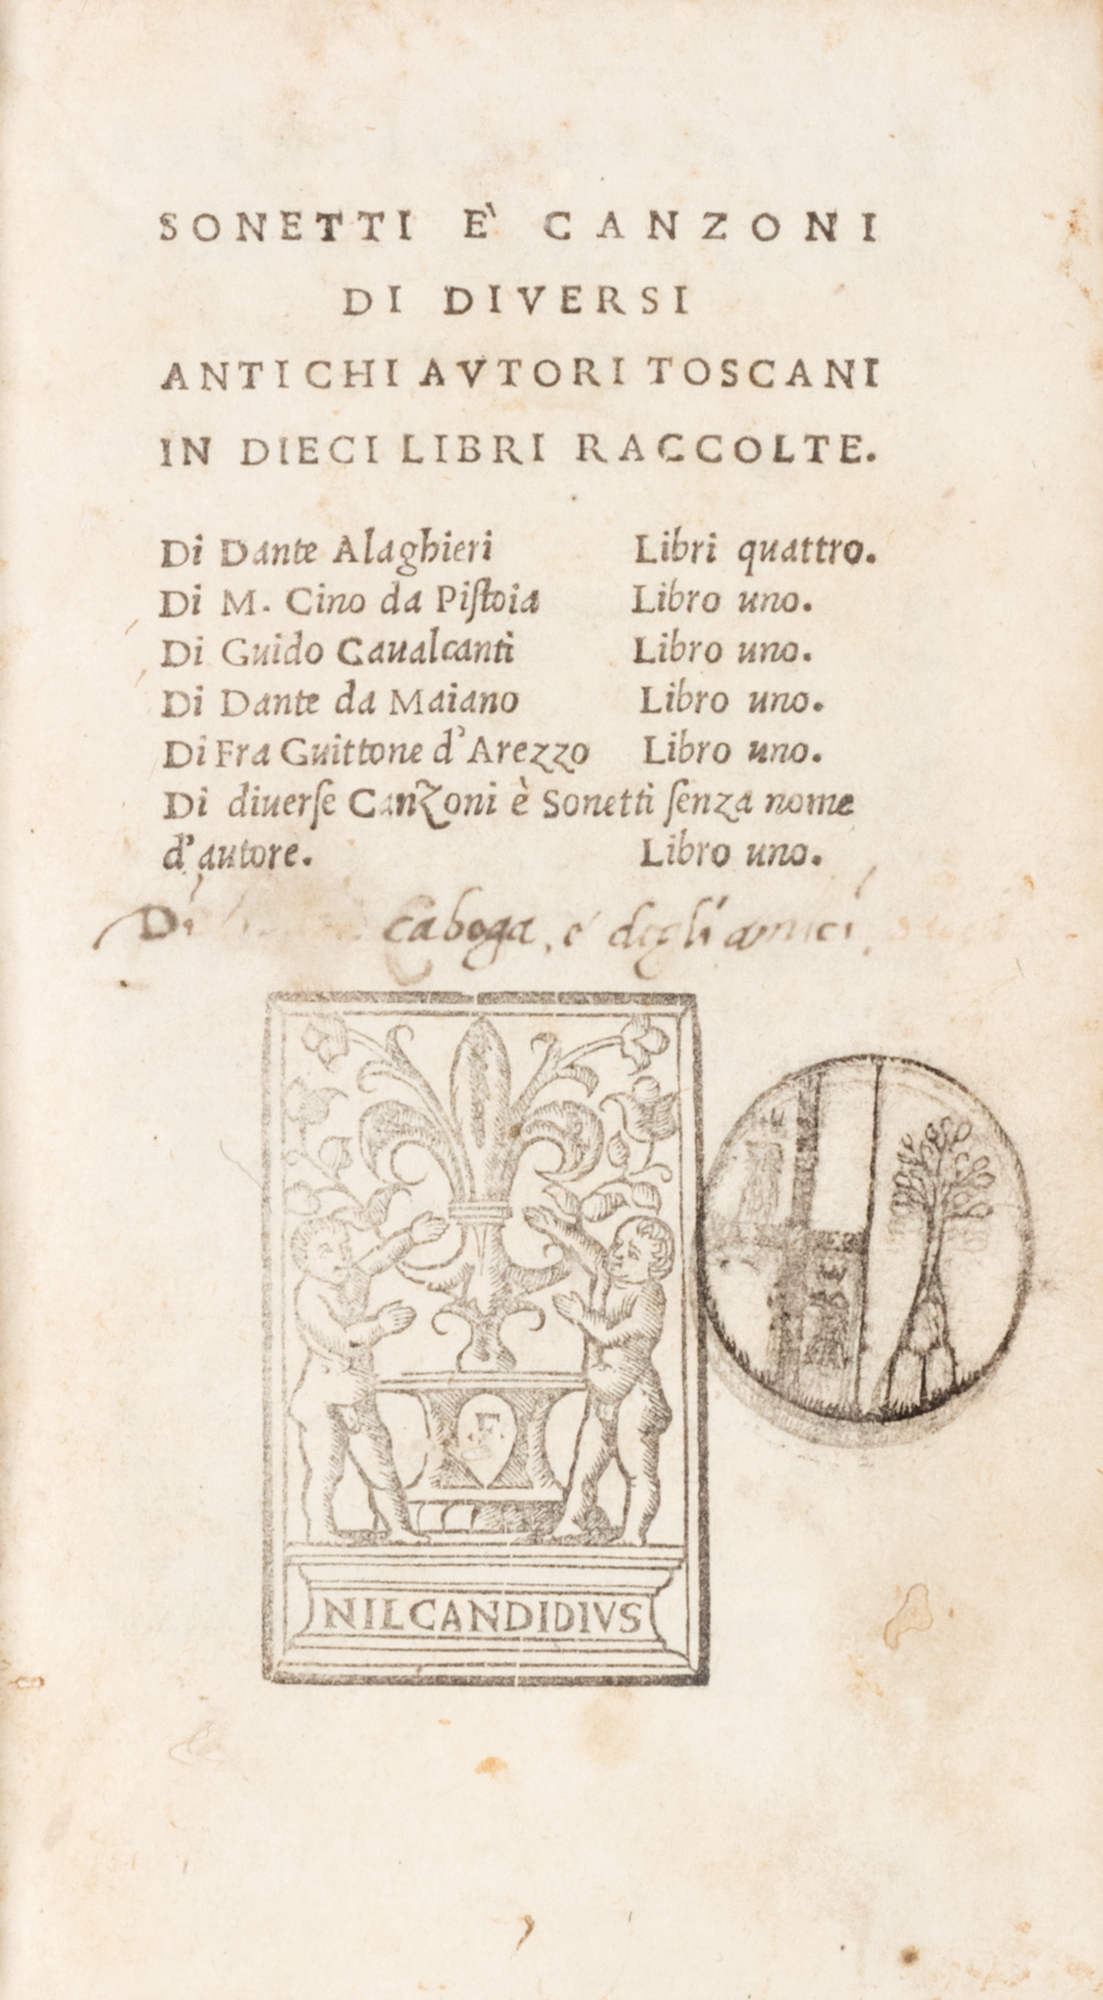 SONETTI E' CANZONI
DI DIVERSI
ANTICHI AVTORI TOSCANI
IN DIECI LIBRI RACCOLTE.
Di Dante Alaghieri Libri quattro.
Di M. Cino da Piſtoia Libro uno.
Di Guido Caualcanti Libro uno.
Di Dante da Maiano Libro uno.
Di Fra Guittone d'Arezzo Libro uno.
Di diuerſe Canzoni è Sonetti ſenza nome
d'autore. Libro uno.
Di Caboga, e degli amici
F
NIL CANDIDIVS